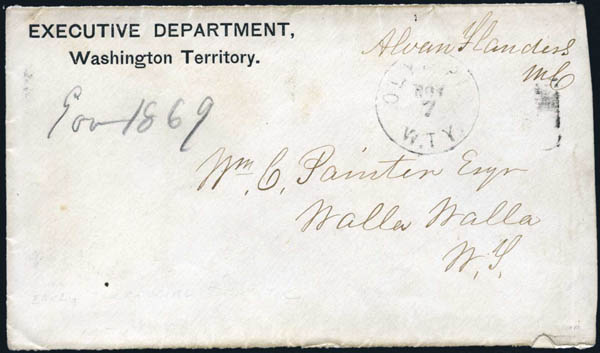 EXECUTIVE DEPARTMENT,
Washington Territory.
Alvan Flanders
MC
Gov 1869
NOV
7
W.T.Y.
Wm. C. Painter Esqr
Walla Walla
W.T.